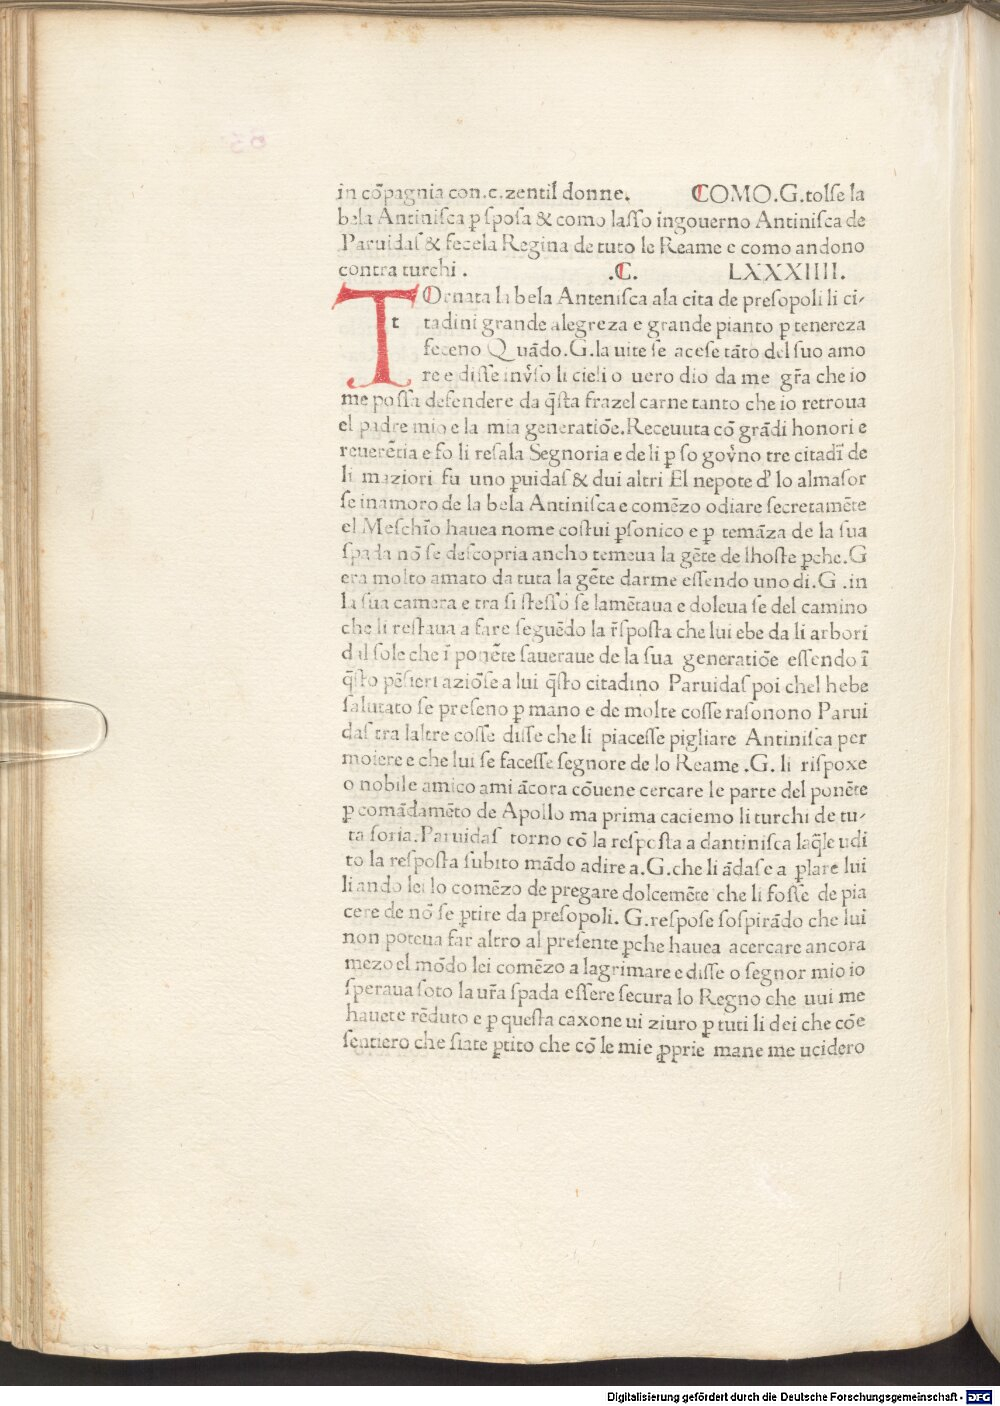 in cõpagnia con.c.zentil donne. COMO.G.tolſe la
bela Antiniſca ꝑ ſpoſa & como laſſo ingouerno Antiniſca de
Paruidaſ & fecela Regina de tuto le Reame e como andono
contra turchi . .C. LXXXIIII.
TOrnata la bela Anteniſca ala cita de preſopoli li ci-
t tadini grande alegreza e grande pianto ꝑ tenereza
feceno Quãdo.G.la uite ſe aceſe tãto del ſuo amo
re e diſſe inv̓ſo li cieli o uero dio da me gr̃a che io
me poſſa defendere da q̃ſta frazel carne tanto che io retroua
el padre mio e la mia generatiõe.Receuuta cõ grãdi honori e
reuerẽtia e fo li reſala Segnoria e de li ꝑ ſo gov̓no tre citadĩ de
li maziori fu uno puidaſ & dui altri El nepote d̓ lo almaſor
ſe inamoro de la bela Antiniſca e comẽzo odiare ſecretamẽte
el Meſchĩo hauea nome coſtui pſonico e ꝑ temãza de la ſua
ſpada nõ ſe deſcopria ancho temeua la gẽte de lhoſte ꝑche.G
era molto amato da tuta la gẽte darme eſſendo uno di.G.in
la ſua camera e tra ſi ſteſſo ſe lamẽtaua e doleua ſe del camino
che li reſtaua a fare ſeguẽdo la r̃ſpoſta che lui ebe da li arbori
dal ſole che ĩ ponẽte ſaueraue de la ſua generatiõe eſſendo ĩ
q̃ſto pẽſieri aziõſe a lui q̃ſto citadino Paruidaſ poi chel hebe
ſalutato ſe preſeno ꝑ mano e de molte coſſe raſonono Parui
daſ tra laltre coſſe diſſe che li piaceſſe pigliare Antiniſca per
moiere e che lui ſe faceſſe ſegnore de lo Reame .G. li riſpoxe
o nobile amico ami ãcora cõuene cercare le parte del ponẽte
ꝑ comãdamẽto de Apollo ma prima caciemo li turchi de tu-
ta ſoria.Paruidaſ torno cõ la reſpoſta a dantiniſca laq̃le udi
to la reſpoſta ſubito mãdo adire a.G.che li ãdaſe a ꝑlare lui
li ando lei lo comẽzo de pregare dolcemẽte che li foſſe de pia
cere de nõ ſe ꝑtire da preſopoli. G.reſpoſe ſoſpirãdo che lui
non poteua far altro al preſente ꝑche hauea acercare ancora
mezo el mõdo lei comẽzo a lagrimare e diſſe o ſegnor mio io
ſperaua ſoto la ur̃a ſpada eſſere ſecura lo Regno che uui me
hauete rẽduto e ꝑ queſta caxone ui ziuro ꝑ tuti li dei che cõe
ſentiero che ſiate ꝑtito che cõ le mie ꝓprie mane me ucidero
Digitalisierung gefördert durch die Deutsche Forschungsgemeinschaft - DFG